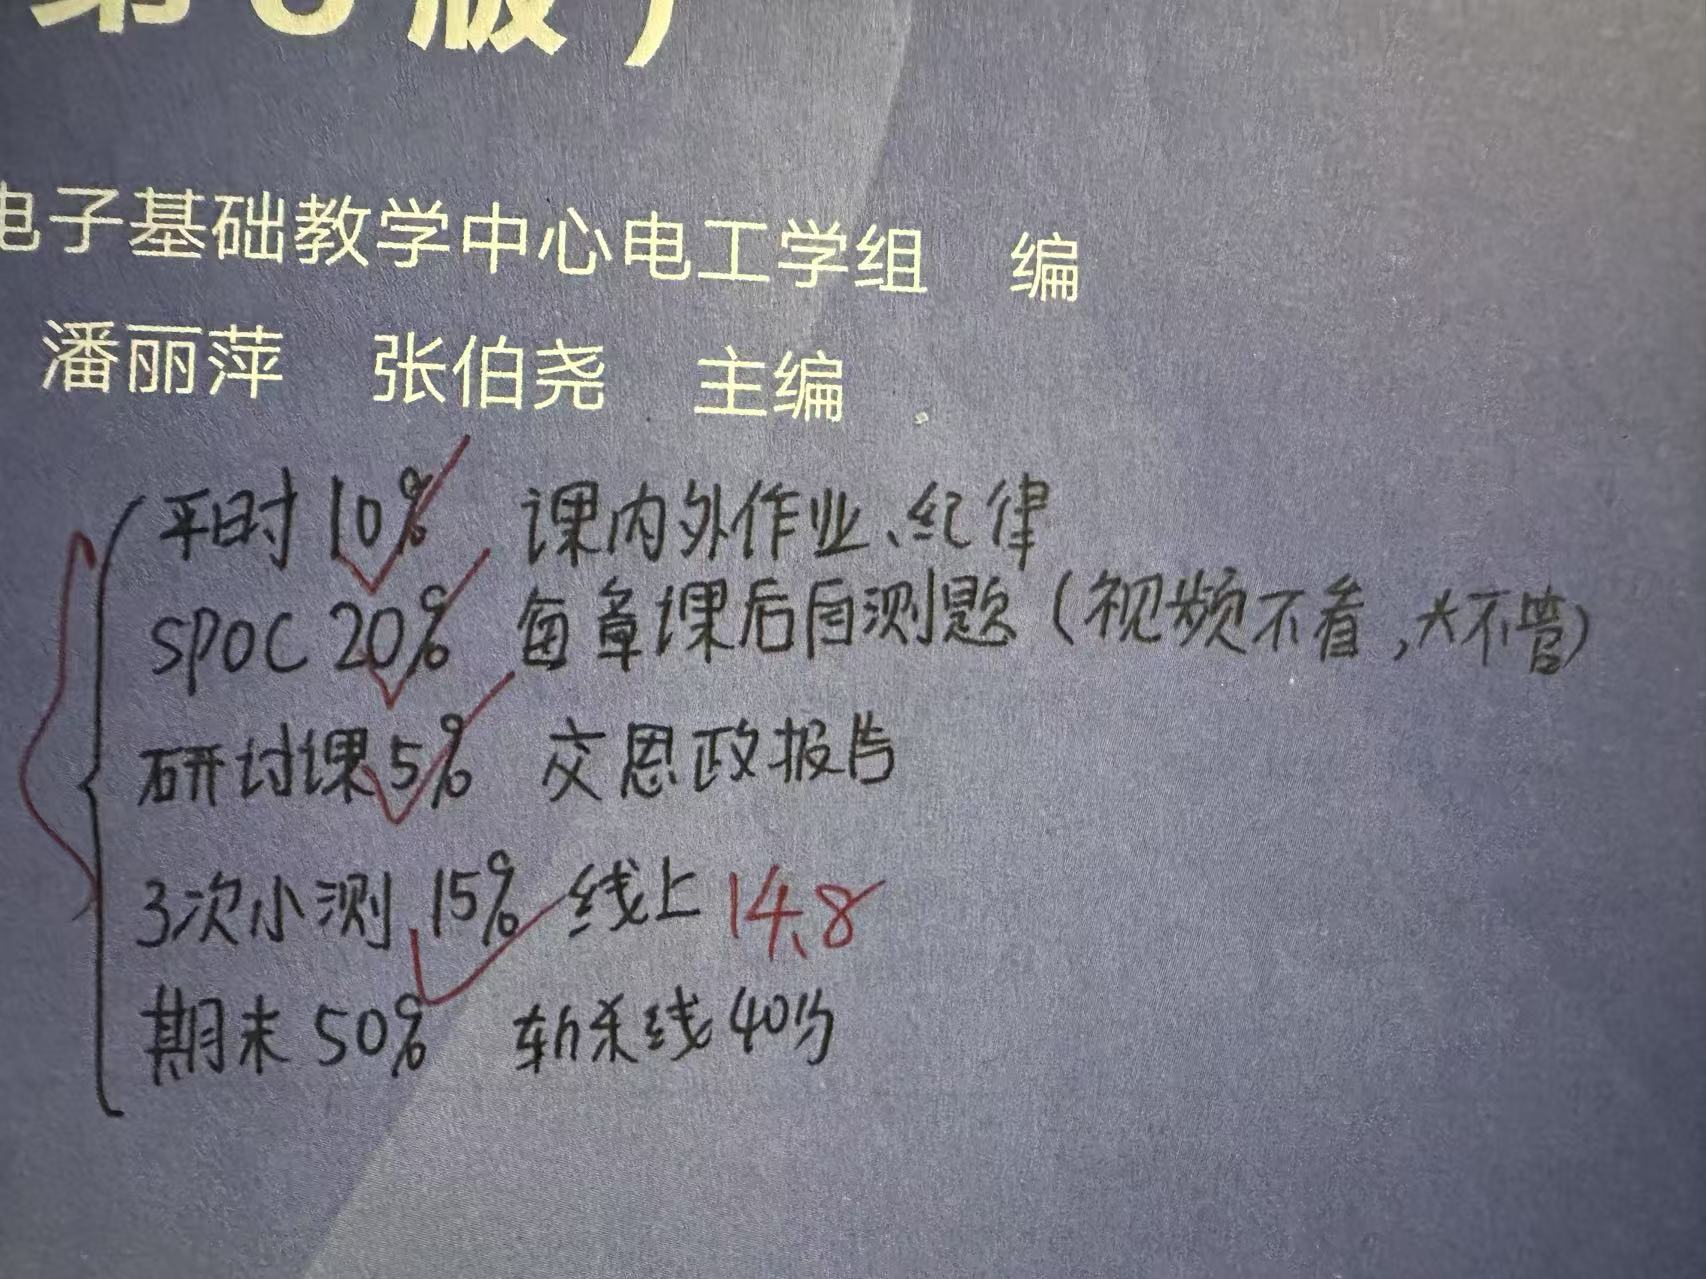 版）
电子基础教学中心电工学组 编
潘丽萍 张伯尧 主编
平时 10% 课内外作业、纪律
SPOC 20% 每章课后自测题（视频不看，大不管）
研讨课 5% 交思政报告
3次小测 15% 线上 14.8
期末 50% 斩杀线 40分